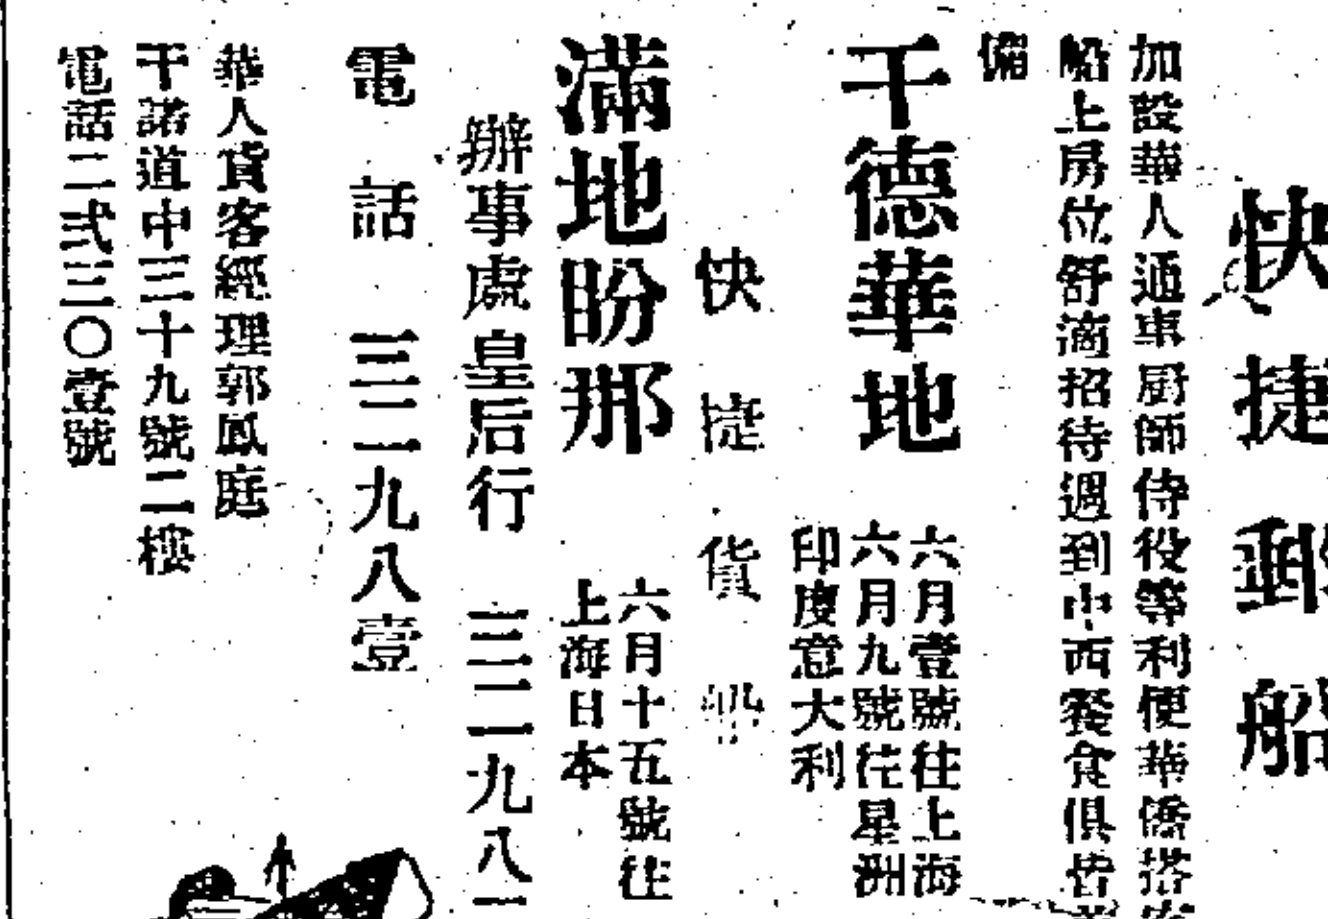 快捷郵船
加設華人通事厨師侍役等利便華僑搭客
船上房位舒適招待週到中西餐食俱皆
備
干德華地
六月壹號往上海
六月九號往星洲
印度意大利
快捷貨船
滿地盼那
六月十五號往
上海日本
辦事處皇后行 三二一九八一
電話 三二一九八壹
華人貨客經理郭鳳庭
干諾道中三十九號二樓
電話二弍三〇壹號